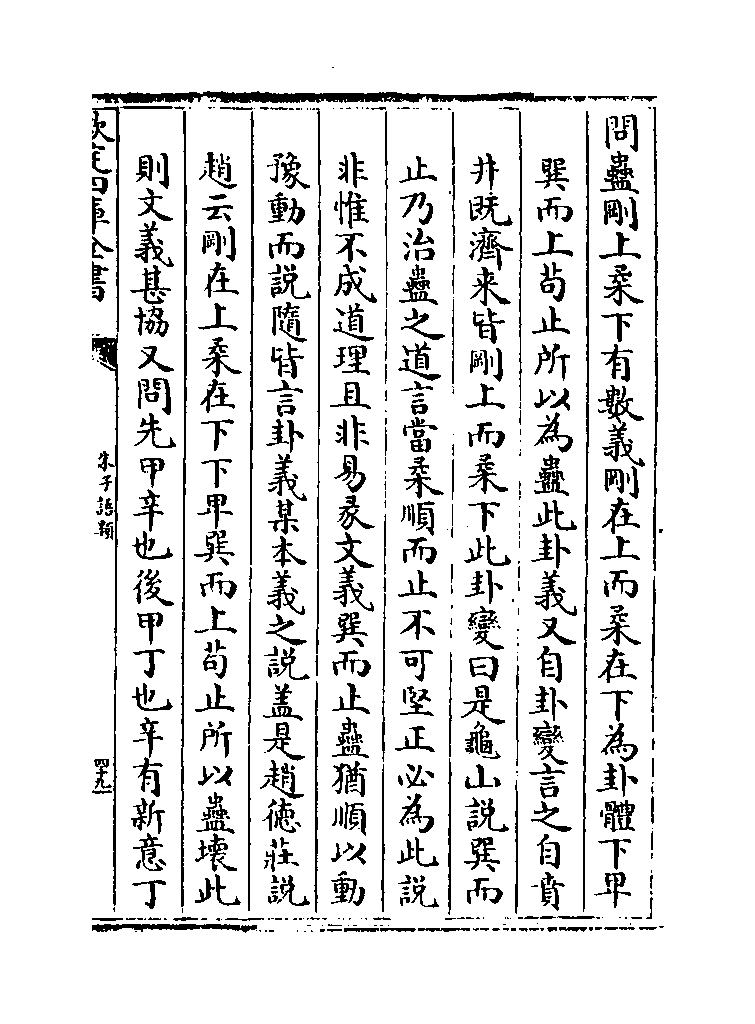 問蠱剛上柔下有數義剛在上而柔在下為卦體下卑
巽而上苟止所以為蠱此卦義又自卦變言之自賁
井既濟來皆剛上而柔下此卦變曰是龜山説巽而
止乃治蠱之道言當柔順而止不可堅正必為此説
非惟不成道理且非易彖文義巽而止蠱猶順以動
豫動而説隨皆言卦義某本義之説蓋是趙徳莊説
趙云剛在上柔在下下卑巽而上苟止所以蠱壞此
則文義甚協又問先甲辛也後甲丁也辛有新意丁
欽定四庫全書
朱子語類
四十九